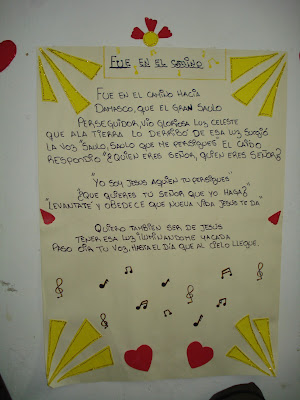 FUE EN EL CAMINO
FUE EN EL CAMINO HACIA
DAMASCO, QUE EL GRAN SAULO
PERSEGUIDOR, VIO GLORIOSA LUZ CELESTE
QUE ALA TIERRA LO DERRIBO DE ESA LUZ SURGIO
LA VOZ "SAULO, SAULO QUE ME PERSIGUES" EL CAIDO
RESPONDIO "¿QUIEN ERES SEÑOR, QUIEN ERES SEÑOR?
"YO SOY JESUS AQUIEN TU PERSIGUES"
¿QUE QUIERES TU SEÑOR QUE YO HAGA?
"LEVANTATE Y OBEDECE QUE NUEVA VIDA JESUS TE DA"
QUIERO TAMBIEN SER DE JESUS
TENER ESA LUZ ILUMINANDOME YACADA
PASO OIR TU VOZ, HASTA EL DIA QUE AL CIELO LLEGUE.